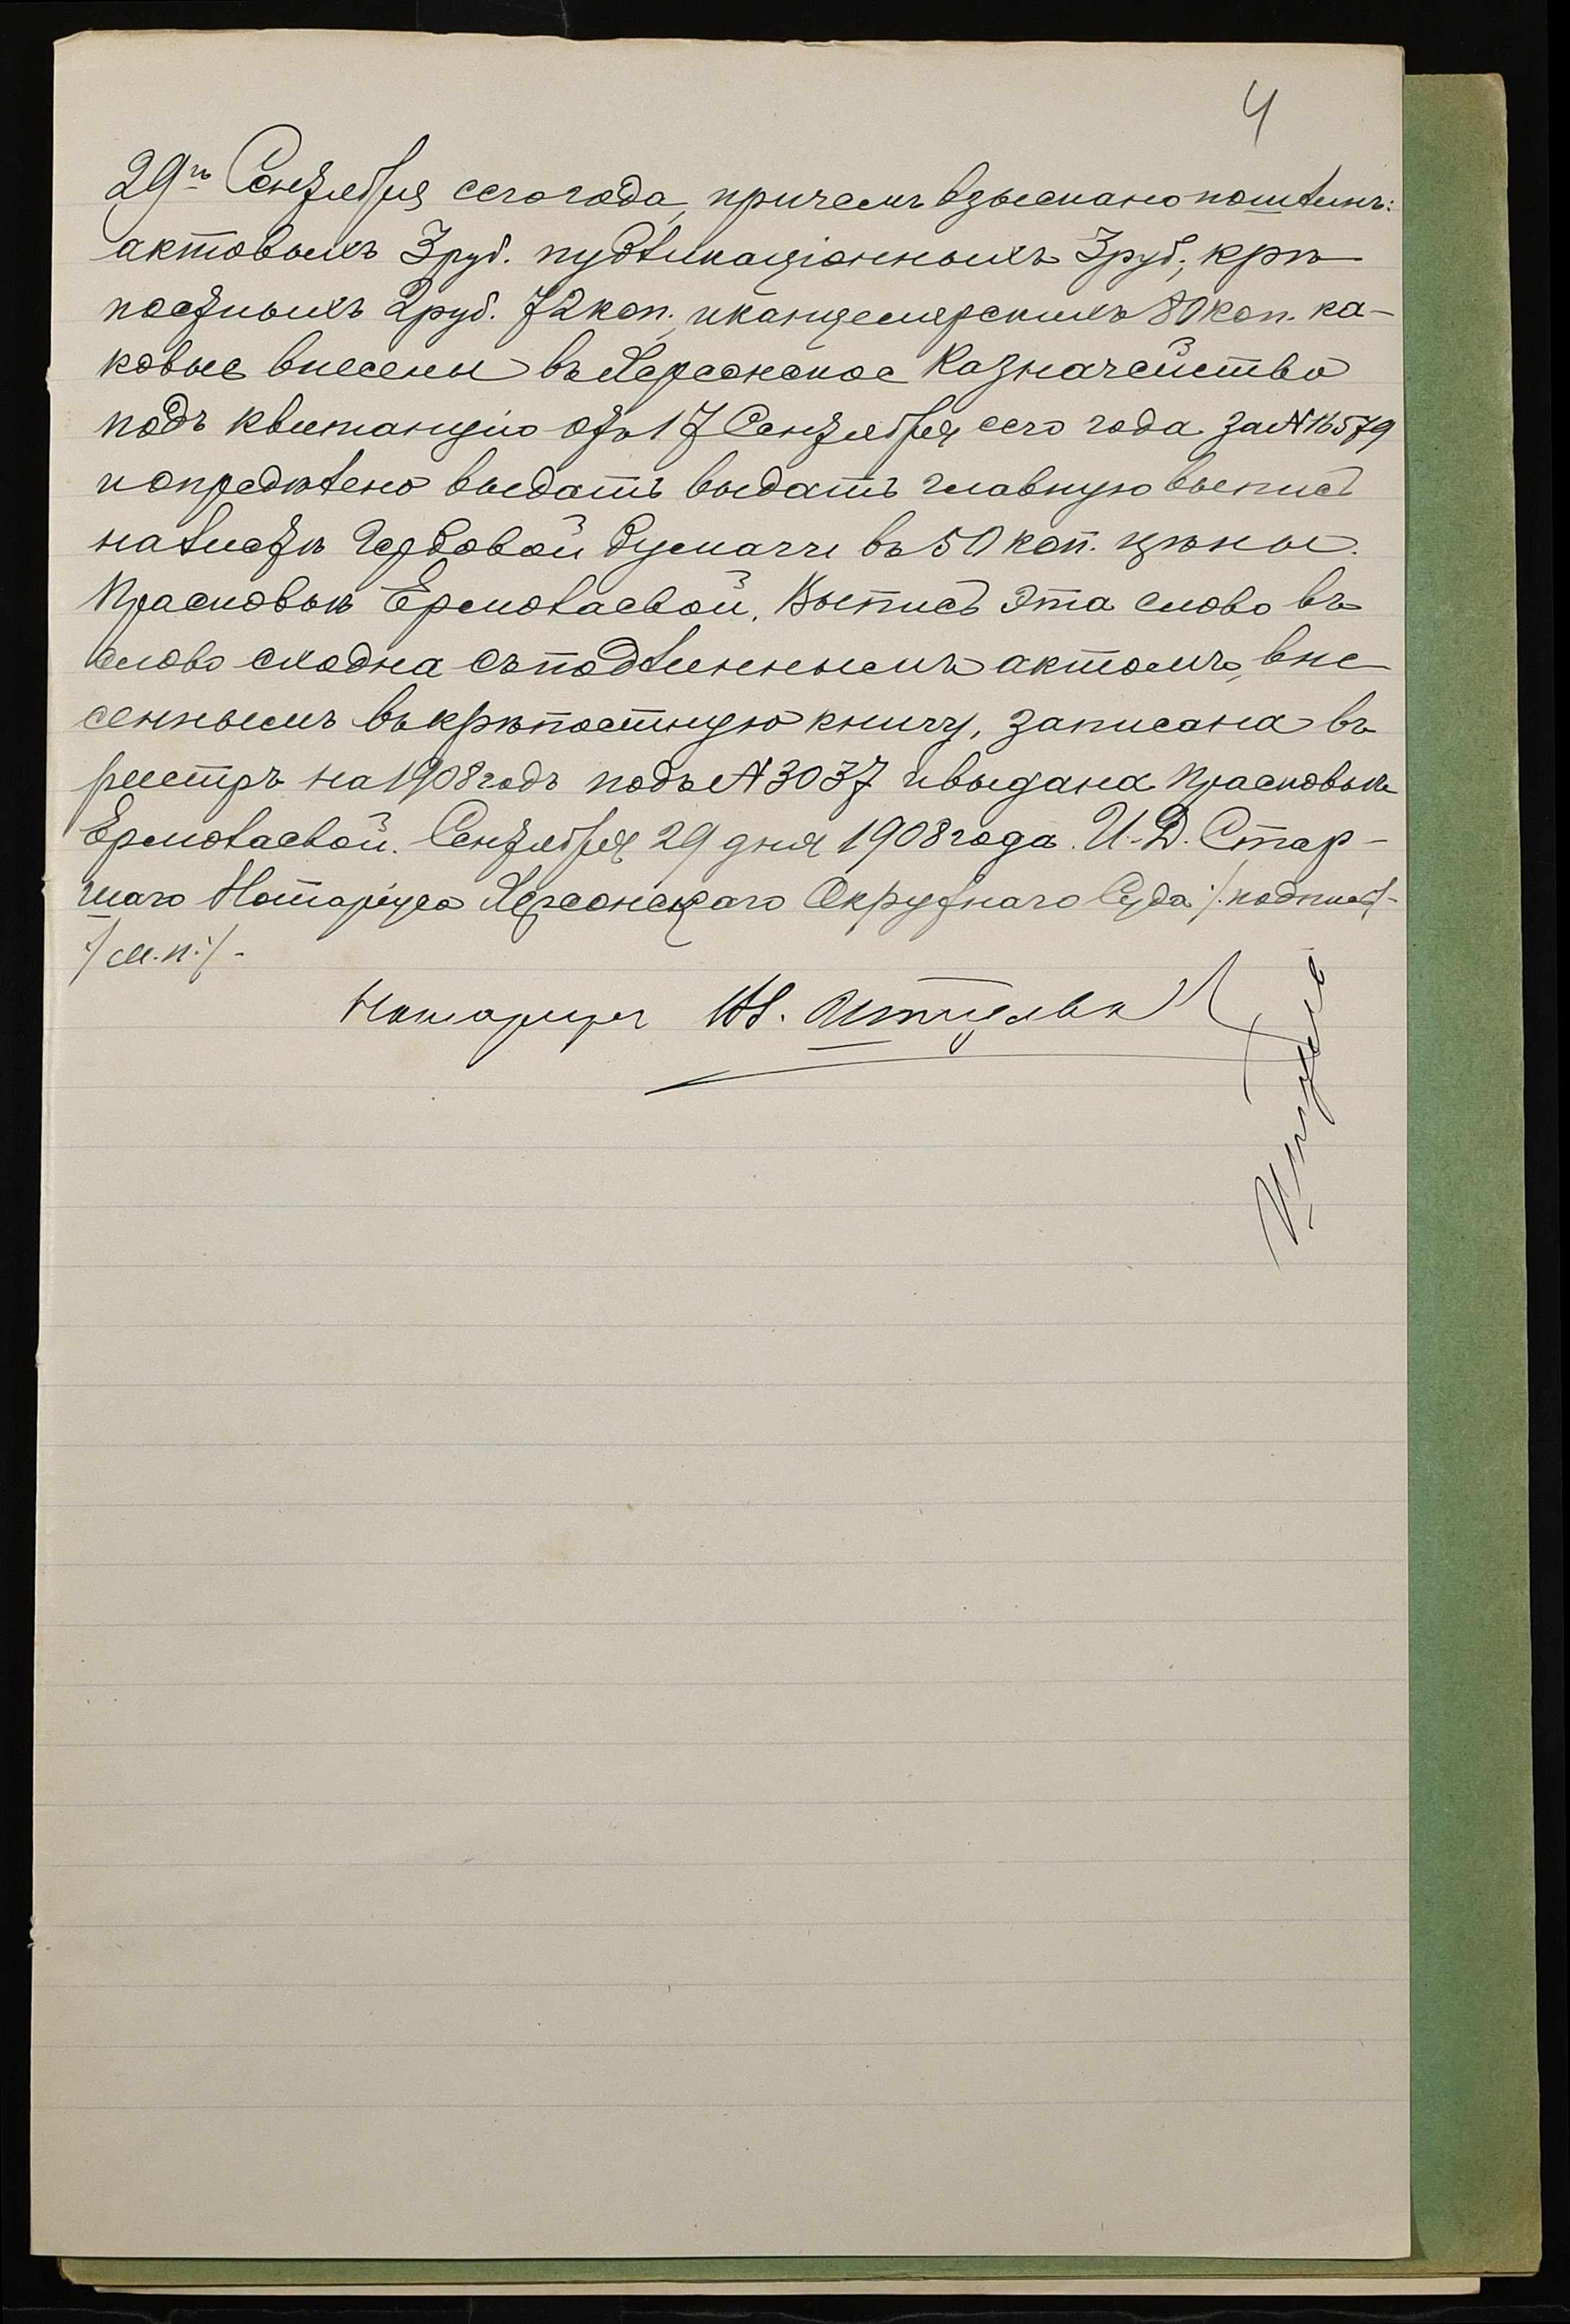 4
29го Сентября сего года, причемъ взыскано пошлинъ:
актовыхъ 3 руб. публикаціонныхъ 3 руб., крѣ
постныхъ 2 руб. 72 коп., и канцелярскихъ 80 коп. ка-
ковые внесены въ Херсонское Казначейство
подъ квитанцію отъ 17 Сентября сего года за № 16579
и опредѣлено выдать выдать главную выпись
на листѣ гербовой бумаги въ 50 коп. цѣны.
Прасковьѣ Ермолаевой. Выпись эта слово въ
слово сходна съ подлиннымъ актомъ, вне
сеннымъ въ крѣпостную книгу, записана въ
реестръ на 1908 годъ подъ № 3037 и выдана Прасковьѣ
Ермолаевой. Сентября 29 дня 1908 года. И. Д. Стар-
шаго Нотаріуса Херсонскаго Окружнаго Суда /:подпись/-
:/м.п.:/-
Нотаріусъ